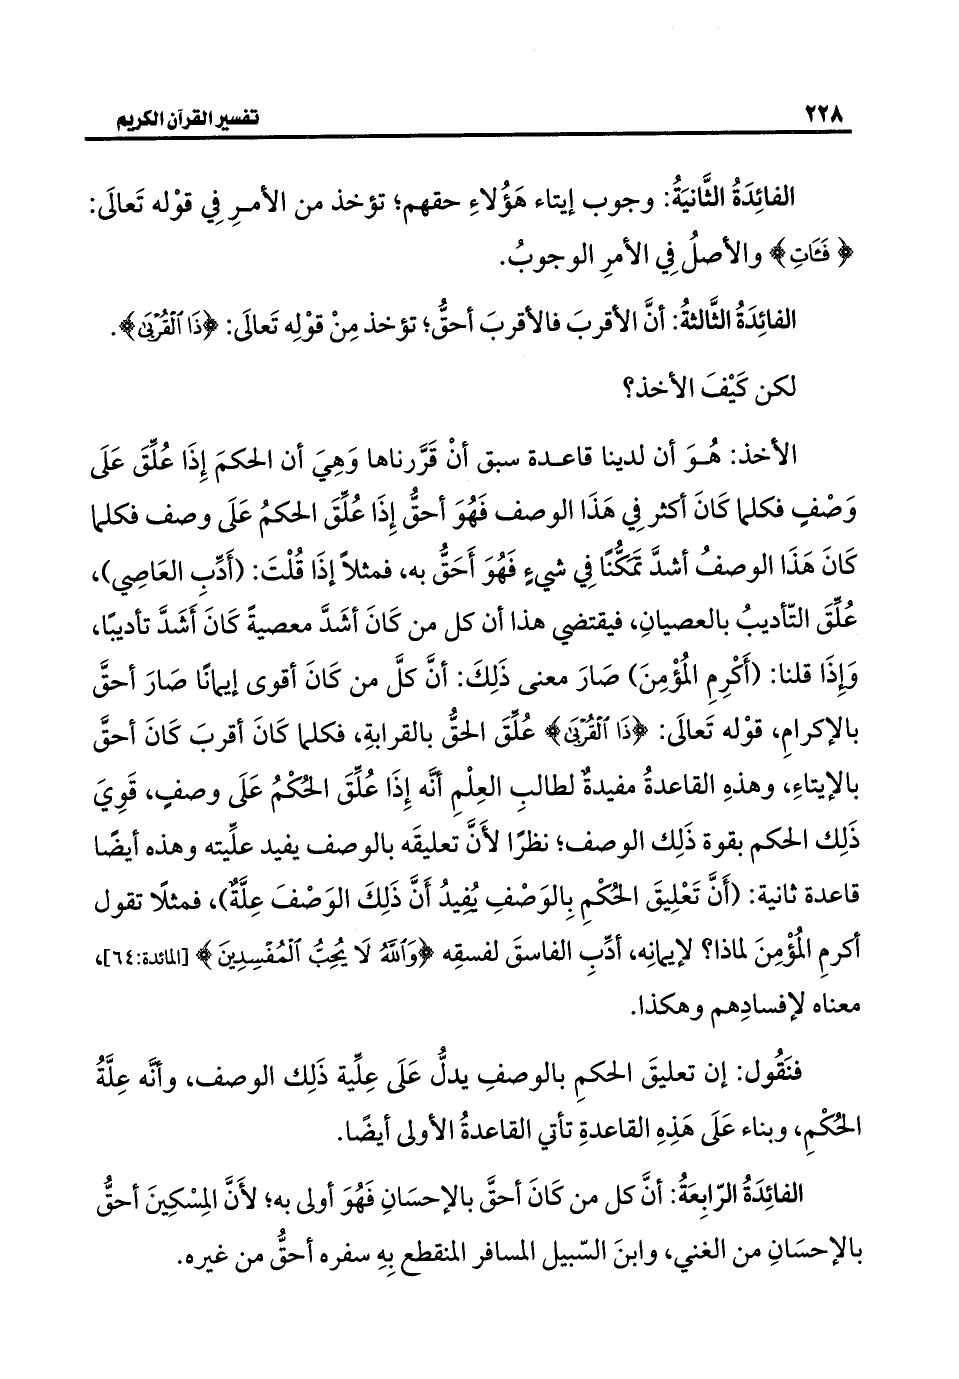 ٢٢٨
تفسير القرآن الكريم
الفائِدَةُ الثَّانيَةُ: وجوب إيتاء هَؤُلاءِ حقهم؛ تؤخذ من الأمـرِ فِي قوْله تَعالَى:
﴿ فَـَٔاتِ﴾ والأصلُ فِي الأمرِ الوجوبُ.
الفائِدَةُ الثَّالثةُ: أنَّ الأقربَ فالأقربَ أحقُّ؛ تؤخذ مِنْ قوْلِه تَعالَى: ﴿ذَا ٱلْقُرْبَىٰ﴾.
لكن كَيْفَ الأخذ؟
الأخذ: هُـوَ أن لدينا قاعـدة سبق أنْ قَرَّرناها وَهِيَ أن الحكمَ إِذَا عُلِّقَ عَلَى
وَصْفٍ فكلما كَانَ أكثر فِي هَذَا الوصف فَهُوَ أحقُّ إِذَا عُلِّقَ الحكمُ عَلَى وصف فكلما
كَانَ هَذَا الوصفُ أشدَّ تمَكُّنًا فِي شيءٍ فَهُوَ أَحَقُّ به، فمثلاً إذَا قُلْتَ: (أَدِّبِ العَاصِي)،
عُلِّقَ التّأديبُ بالعصيانِ، فيقتضي هذا أن كل من كَانَ أشَدَّ معصيةً كَانَ أَشَدَّ تأديبًا،
وَإِذَا قلنا: (أَكْرِمِ المُؤْمِنَ) صَارَ معنى ذَلِكَ: أنَّ كلَّ من كَانَ أقوى إيمانًا صَارَ أحقَّ
بالإكرامِ، قوْله تَعالَى: ﴿ذَا ٱلْقُرْبَىٰ﴾ عُلِّقَ الحقُّ بالقرابةِ، فكلما كَانَ أقربَ كَانَ أحقَّ
بالإيتاءِ، وهذهِ القاعدةُ مفيدةٌ لطالبِ العِلْمِ أنَّه إذَا عُلِّقَ الحُكْمُ عَلَى وصفٍ، قَوِيَ
ذَلِك الحكم بقوة ذَلِك الوصف؛ نظرًا لأنَّ تعليقَه بالوصف يفيد علِّيته وهذه أيضًا
قاعدة ثانية: (أَنَّ تَعْلِيقَ الحُكْمِ بِالوَصْفِ يُفِيدُ أَنَّ ذَلِكَ الوَصْفَ عِلَّةٌ)، فمثلًا تقول
أكرمِ المُؤْمِنَ لماذا؟ لإيمانِه، أدِّبِ الفاسقَ لفسقِه ﴿وَٱللَّهُ لَا يُحِبُّ ٱلْمُفْسِدِينَ ﴾ [المائدة:٦٤]،
معناه لإفسادِهم وهكذا.
فنَقُول: إن تعليقَ الحكمِ بالوصفِ يدلُّ عَلَى عِلِّية ذَلِك الوصف، وأنَّه عِلَّةُ
الحُكْمِ، وبناء عَلَى هَذِهِ القاعدةِ تأتي القاعدةُ الأولى أيضًا.
الفائِدَةُ الرّابِعَةُ: أنَّ كل من كَانَ أحقَّ بالإحسَانِ فَهُوَ أولى به؛ لأنَّ المِسْكِينَ أحقُّ
بالإحسَانِ من الغني، وابنَ السّبيل المسافر المنقطع بِهِ سفره أحقُّ من غيره.